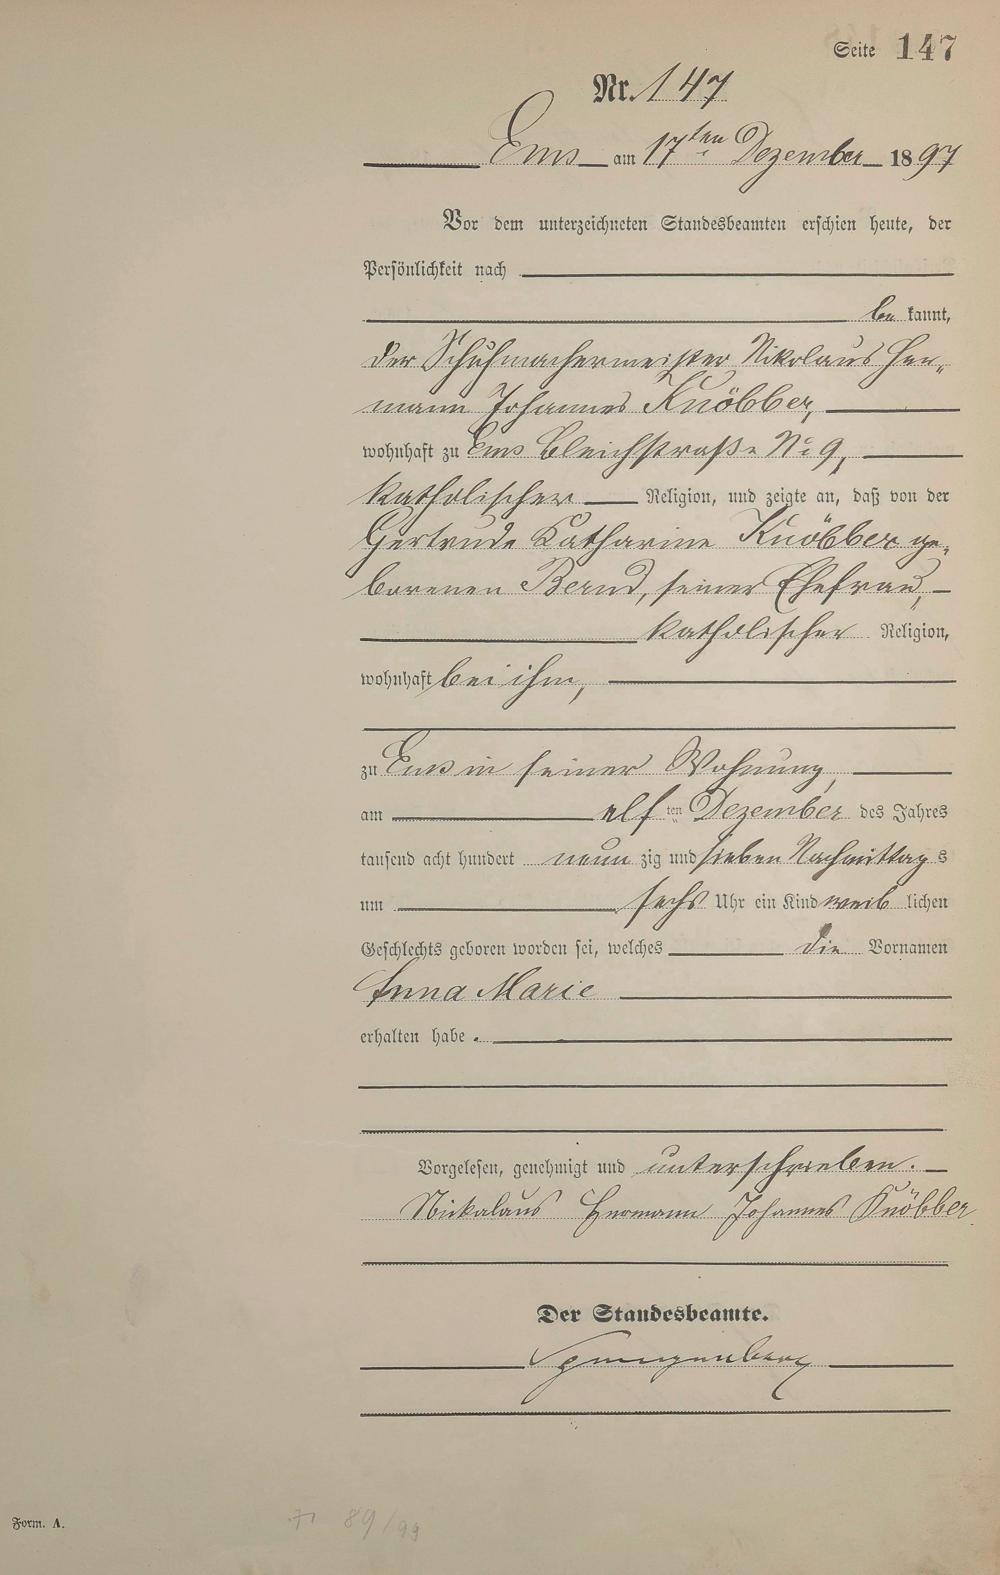 Seite 147
Nr. 147
Ems am 17ten Dezember 1897
Vor dem unterzeichneten Standesbeamten erschien heute, der
Persönlichkeit nach
be kannt,
der Schuhmachermeister Nikolaus Her-
mann Johannes Knöbber,
wohnhaft zu Ems Bleichstraße No 9,
katholischer Religion, und zeigte an, daß von der
Gertrude Katharine Knöbber ge-
borenen Bernd, seiner Ehefrau,
katholischer Religion,
wohnhaft bei ihm,
zu Ems in seiner Wohnung,
am elf ten Dezember des Jahres
tausend acht hundert neun zig und sieben Nachmittag s
um sechs Uhr ein Kind weib lichen
Geschlechts geboren worden sei, welches die Vornamen
Anna Marie
erhalten habe.
Vorgelesen, genehmigt und unterschrieben.
Nickalaus Hermann Johannes Knöbber
Der Standesbeamte.
Form. A.
89/99